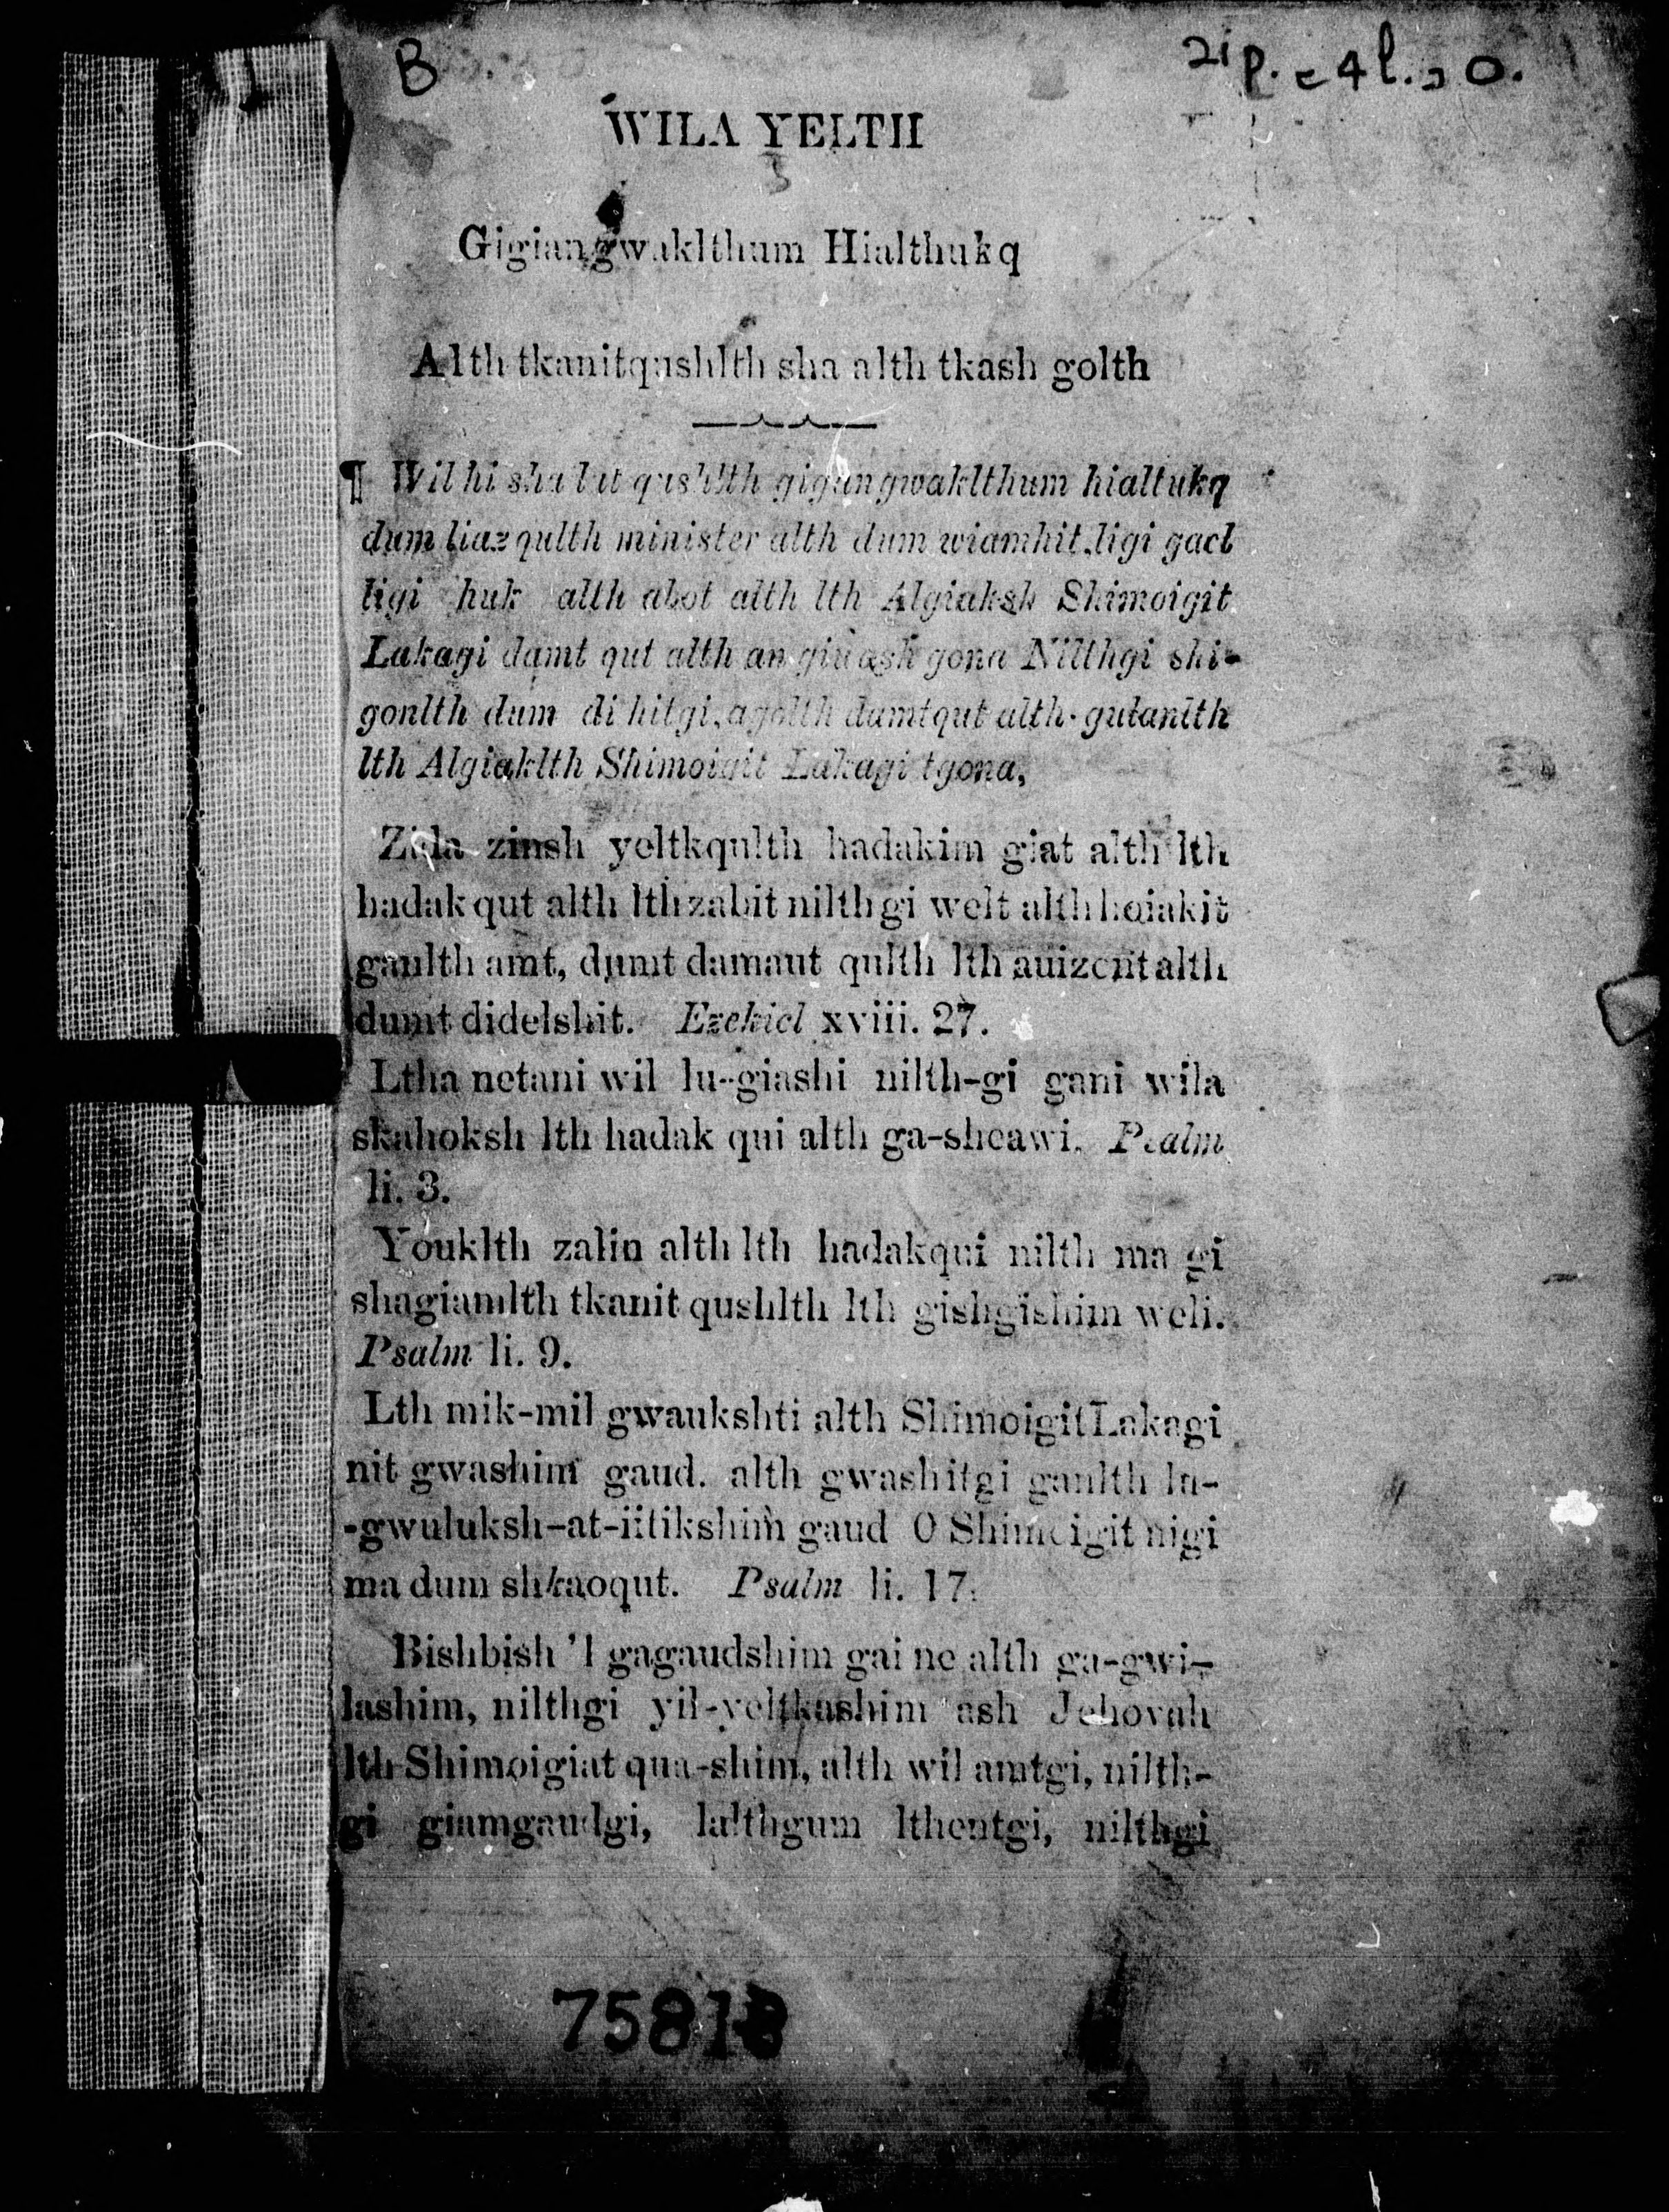 B
21 p. = 4 l., 0.
WILA YELTH
Gigiangwaklthum Hialthukq
Alth tkanitqushlth sha alth tkash golth
¶ Wil hi sha lut qushlth gigiangwaklthum hialtukq
dum liaz qulth minister alth dum wiamhit ligi gacl
ligi huk alth abot alth lth Algiaksh Shimoigit
Lakagi damt qut alth an giiask gona Nilthgi shi-
gonlth dum di hitgi, agolth dumtqut alth gutanlth
lth Algiaklth Shimoigit Lakagi tgona,
Zida zinsh yeltkqulth hadakim giat alth lth
hadak qut alth lth zabit nilthgi welt alth hoiakit
gaulth amt, dumt damaut qulth lth auizent alth
dumt didelshit. Ezekiel xviii. 27.
Ltha netani wil lu-giashi nilth-gi gani wila
skahoksh lth hadak qui alth ga-sheawi. Psalm
li. 3.
Youklth zalin alth lth hadakqui nilth ma gi
shagiamlth tkanit qushlth lth gishgishim weli.
Psalm li. 9.
Lth mik-mil gwaukshti alth Shimoigit Lakagi
nit gwashim gaud. alth gwashitgi gaulth lu-
-gwuluksh-at-iitikshim gaud O Shimoigit nigi
ma dum shkaoqut. Psalm li. 17.
Bishbish 'l gagaudshim gai ne alth ga-gwi-
lashim, nilthgi yil-yeltkashim ash Jehovah
lth Shimoigiat qua-shim, alth wil amtgi, nilth-
gi giamgaudgi, lalthgum lthentgi, nilthgi